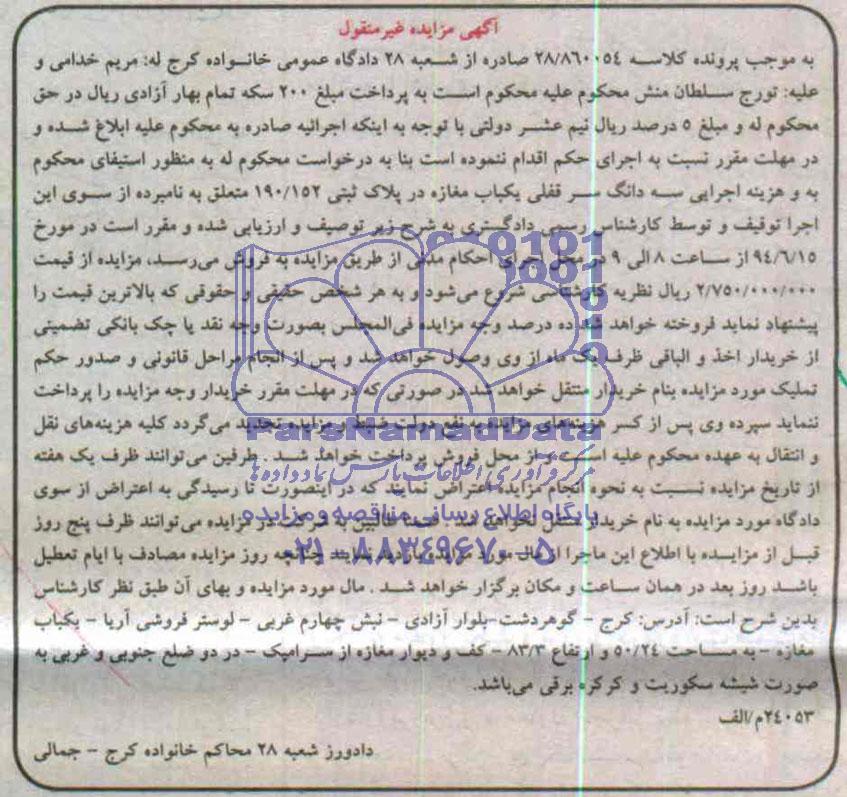 آگهی مزایده غیرمنقول
به موجب پرونده کلاسه ۲۸/۸۶۰۰۵٤ صادره از شعبه ۲۸ دادگاه عمومی خانواده کرج له: مریم خدامی و
علیه: تورج سلطان منش محکوم علیه محکوم است به پرداخت مبلغ ۲۰۰ سکه تمام بهار آزادی ریال در حق
محکوم له و مبلغ ۵ درصد ریال نیم عشر دولتی با توجه به اینکه اجرائیه صادره به محکوم علیه ابلاغ شده و
در مهلت مقرر نسبت به اجرای حکم اقدام ننموده است بنا به درخواست محکوم له به منظور استیفای محکوم
به و هزینه اجرایی سه دانگ سر قفلی یکباب مغازه در پلاک ثبتی ۱۹۰/۱۵۲ متعلق به نامبرده از سوی این
اجرا توقیف و توسط کارشناس رسمی دادگستری به شرح زیر توصیف و ارزیابی شده و مقرر است در مورخ
۹٤/٦/۱۵ از ساعت ۸ الی ۹ در محل اجرای احکام مدنی از طریق مزایده به فروش می‌رسد، مزایده از قیمت
۲/۷۵۰/۰۰۰/۰۰۰ ریال نظریه کارشناسی شروع می‌شود و به هر شخص حقیقی و حقوقی که بالاترین قیمت را
پیشنهاد نماید فروخته خواهد شد ده درصد وجه مزایده فی‌المجلس بصورت وجه نقد یا چک بانکی تضمینی
از خریدار اخذ و الباقی ظرف یک ماه از وی وصول خواهد شد و پس از انجام مراحل قانونی و صدور حکم
تملیک مورد مزایده بنام خریدار منتقل خواهد شد در صورتی که در مهلت مقرر خریدار وجه مزایده را پرداخت
ننماید سپرده وی پس از کسر هزینه‌های مزایده به نفع دولت ضبط و مزایده تجدید می‌گردد کلیه هزینه‌های نقل
و انتقال به عهده محکوم علیه است و از محل فروش پرداخت خواهد شد . طرفین می‌توانند ظرف یک هفته
از تاریخ مزایده نسبت به نحوه انجام مزایده اعتراض نمایند که در اینصورت تا رسیدگی به اعتراض از سوی
دادگاه مورد مزایده به نام خریدار منتقل نخواهد شد . ضمنا طالبین به شرکت در مزایده می‌توانند ظرف پنج روز
قبل از مزایده با اطلاع این ماجرا از مال مورد مزایده بازدید نمایند چنانچه روز مزایده مصادف با ایام تعطیل
باشد روز بعد در همان ساعت و مکان برگزار خواهد شد . مال مورد مزایده و بهای آن طبق نظر کارشناس
بدین شرح است: آدرس: کرج - گوهردشت-بلوار آزادی - نبش چهارم غربی - لوستر فروشی آریا - یکباب
مغازه - به مساحت ۵۰/۲٤ و ارتفاع ۸۳/۳ - کف و دیوار مغازه از سرامیک - در دو ضلع جنوبی و غربی به
صورت شیشه سکوریت و کرکره برقی می‌باشد.
۲٤۰۵۳م/الف
دادورز شعبه ۲۸ محاکم خانواده کرج - جمالی
ParsNamadData
مرکز فرآوری اطلاعات پارس نماد داده‌ها
پایگاه اطلاع رسانی مناقصه و مزایده
۰۲۱-۸۸۳٤۹٦۷۰-۵